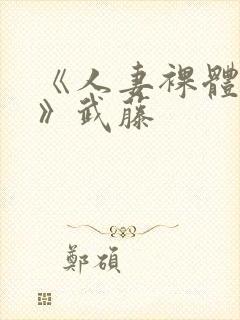 《人妻裸體
》武藤
鄭碩